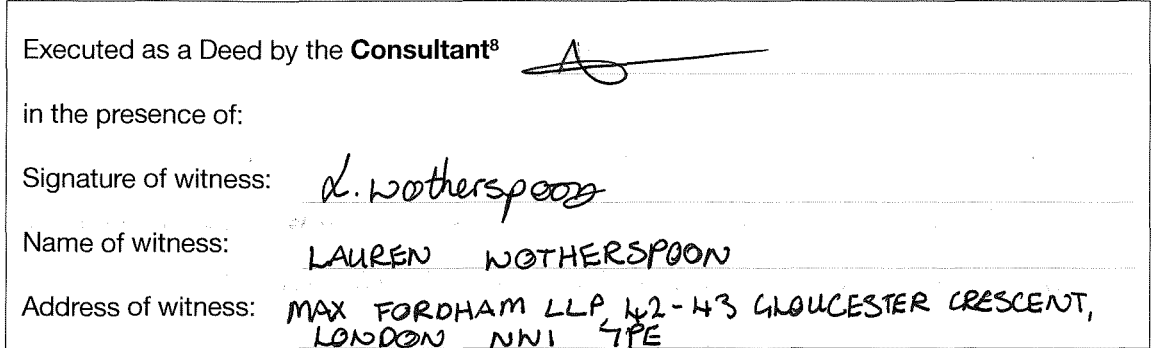 Executed as a Deed by the Consultant⁸
in the presence of:
Signature of witness: L. Wotherspoon
Name of witness: LAUREN WOTHERSPOON
Address of witness: MAX FORDHAM LLP, 42-43 GLOUCESTER CRESCENT,
LONDON NW1 7PE